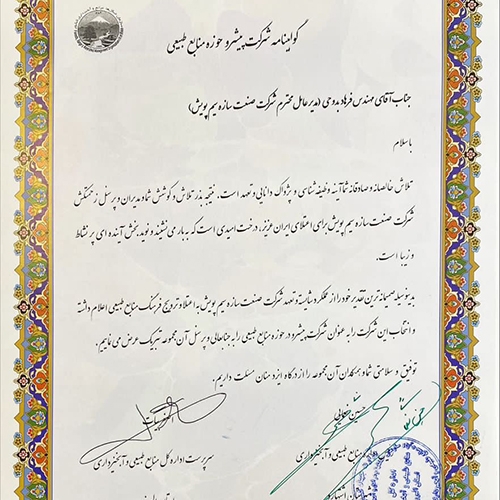 گواهینامه شرکت پیشرو حوزه منابع طبیعی
جناب آقای مهندس فرهاد بدوحی (مدیرعامل محترم شرکت صنعت سازه سیم پویش)
باسلام
تلاش خالصانه و صادقانه شما آئینه وظیفه شناسی و پژواک دانایی و تعهد است. نتیجه بذر تلاش و کوشش شما و مدیران و پرسنل زحمتکش
شرکت صنعت سازه سیم پویش برای اعتلای ایران عزیز، درخت امیدی است که به بار می نشیند و نوید بخش آینده ای پر نشاط
و زیبا است.
بدینوسیله صمیمانه ترین تقدیر خود را از عملکرد شایسته و تعهد شرکت صنعت سازه سیم پویش به اعتلا و ترویج فرهنگ منابع طبیعی اعلام داشته
و انتخاب این شرکت را به عنوان شرکت پیشرو در حوزه منابع طبیعی را به جنابعالی و پرسنل آن مجموعه تبریک عرض می نماییم.
توفیق و سلامتی شما و همکاران آن مجموعه را از درگاه ایزد منان مسئلت داریم.
منابع طبیعی و آبخیزداری
سرپرست اداره کل منابع طبیعی و آبخیزداری